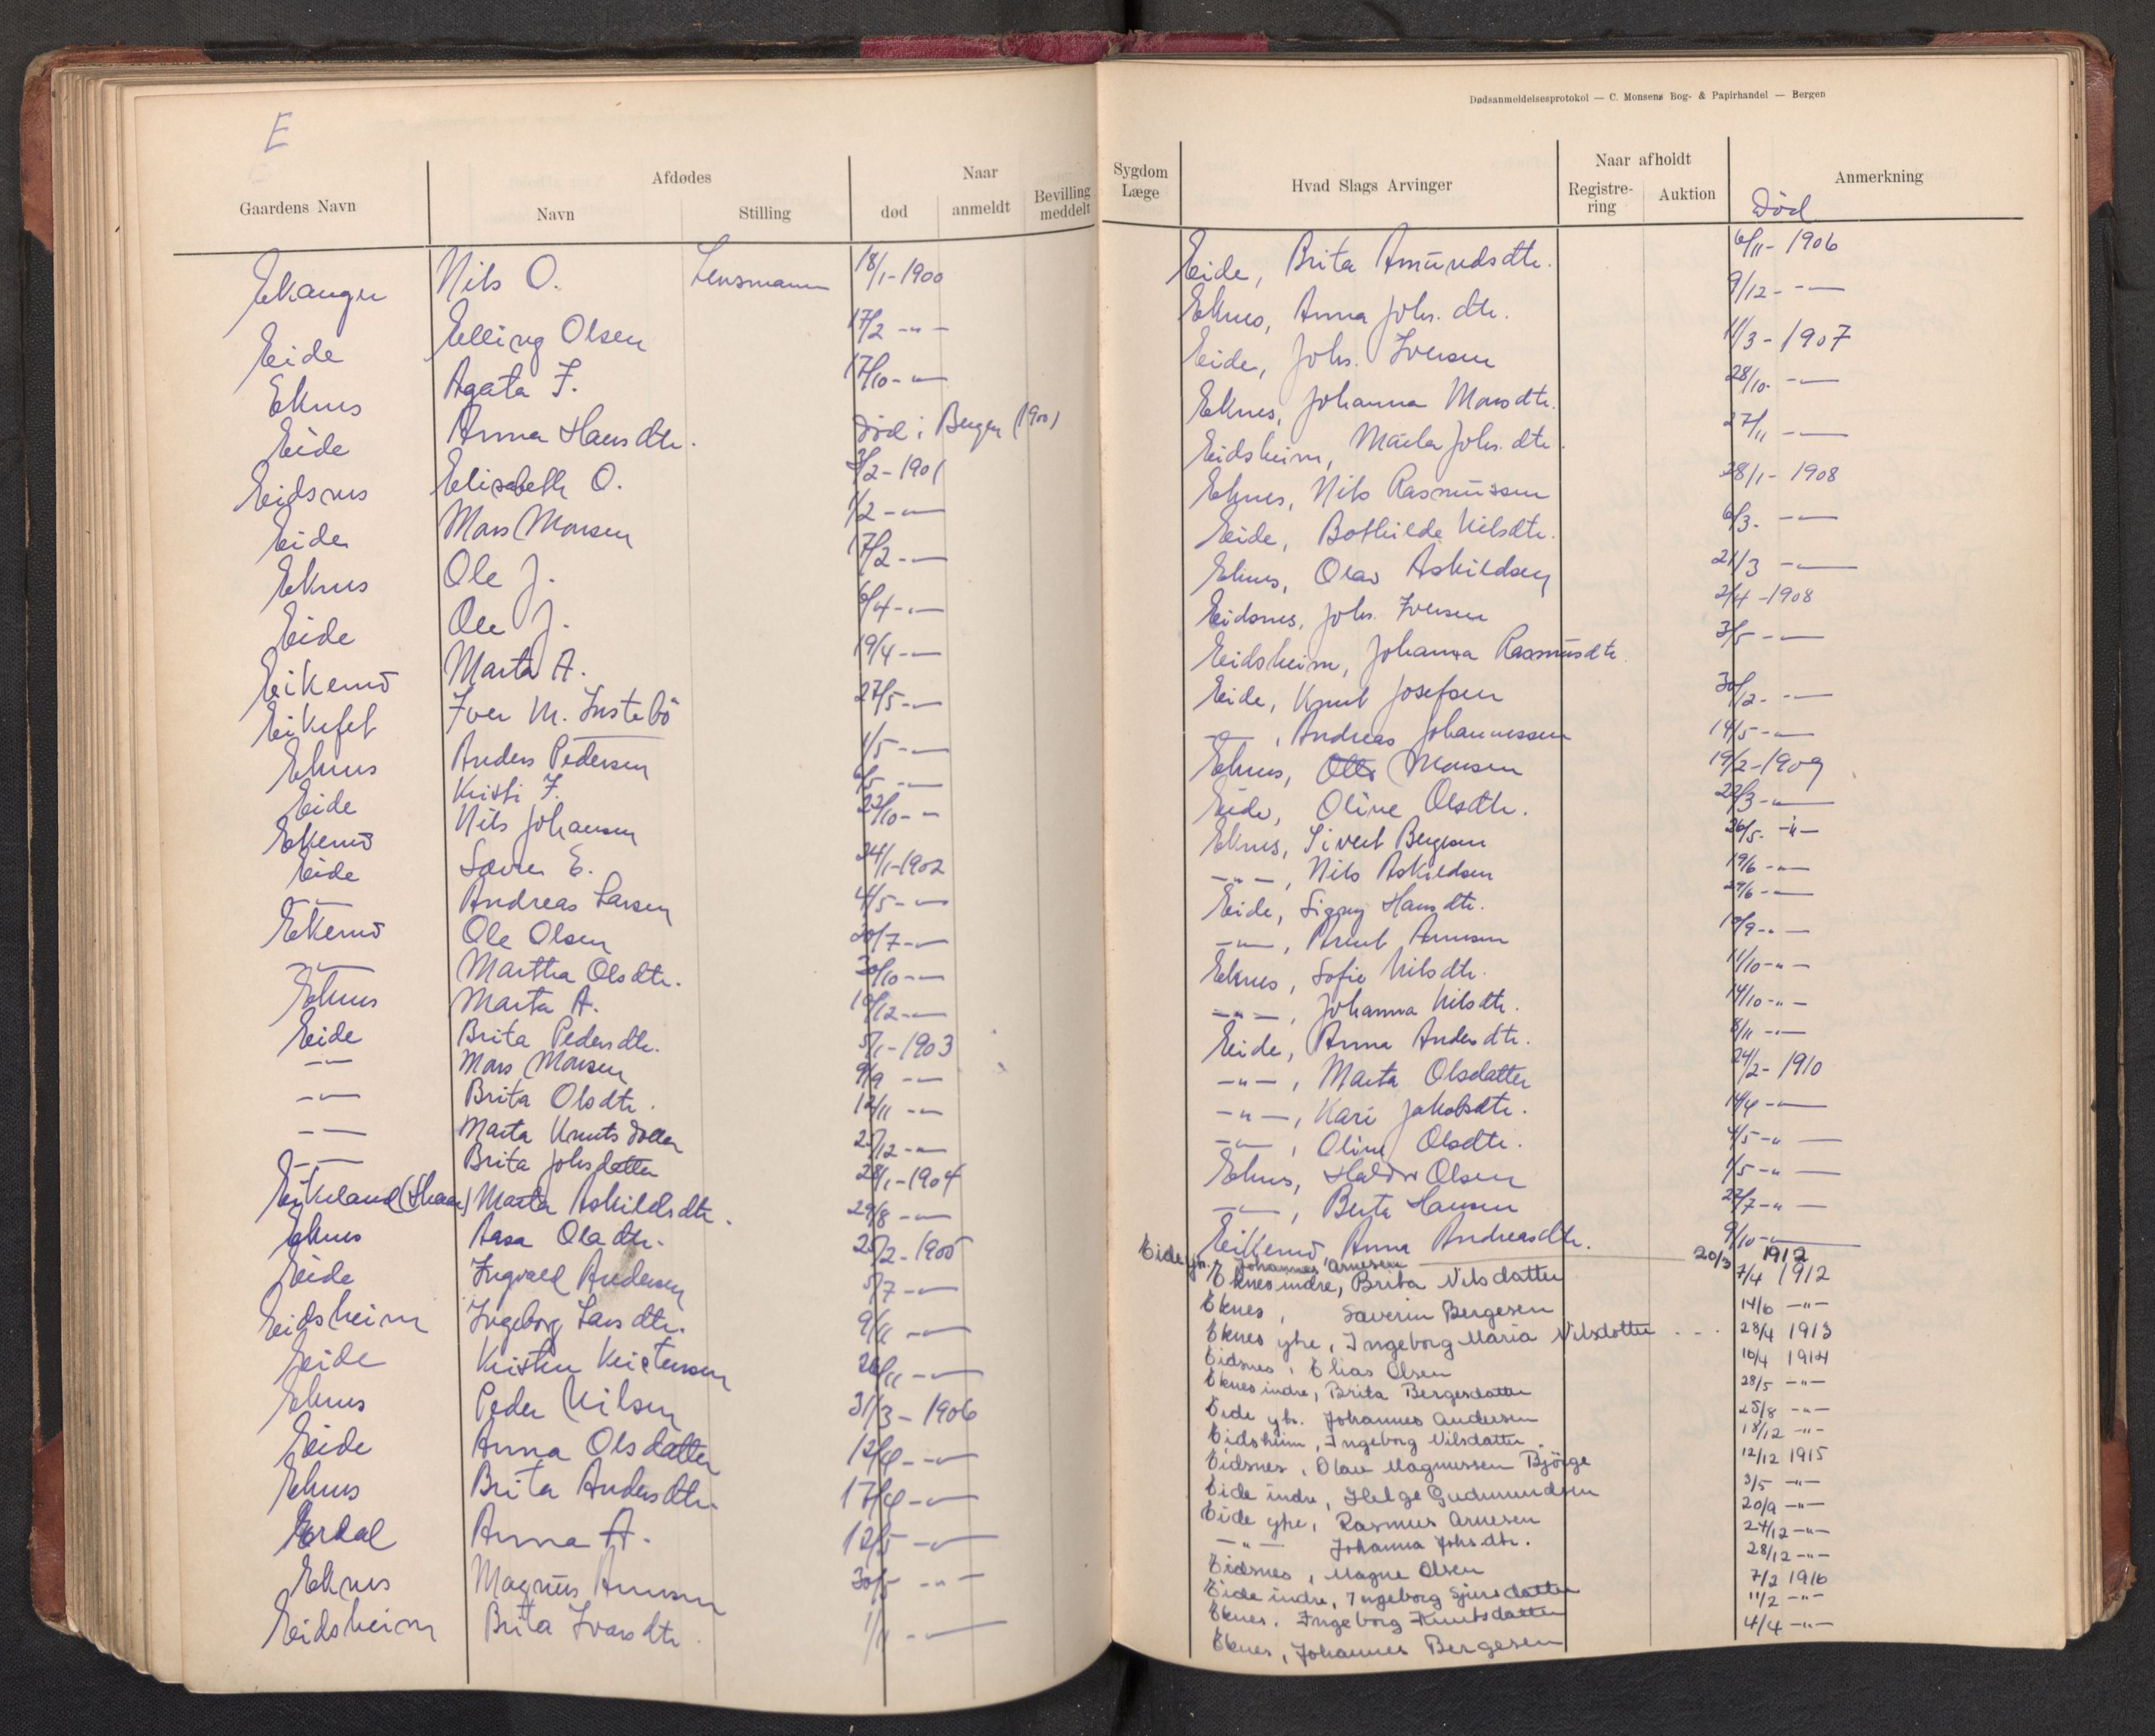 E
Gaardens Navn
Afdødes
Navn
Stilling
Naar
død
anmeldt
Bevilling meddelt
Ekanger Nils O. Lensmann 18/1-1900
Eide Elling Olsen 17/2 -"-
Eknes Agata I. 17/10 -"-
Eide Anna Hansdtr. død i Bergen (1900)
Eidsnes Elisabeth O. 3/2-1901
Eide Mons Monsen 1/2 -"-
Eknes Ole J. 17/2 -"-
Eide Ole J. 6/4 -"-
Eikemo Marta A. 19/4 -"-
Eikefet Iver M. Instebø 27/5 -"-
Eknes Anders Pedersen 1/5 -"-
Eide Kristi I. 6/5 -"-
Ekemo Nils Johansen 22/10 -"-
Eide E. 24/1-1902
-"- Andreas Larsen 4/5 -"-
Ekemo Ole Olsen 20/7 -"-
-"- Martha Olsdtr. 30/10 -"-
Eknes Marta A. 10/12 -"-
Eide Brita Pedersdtr. 5/1-1903
-"- Mons Monsen 9/9 -"-
-"- Brita Olsdtr. 12/11 -"-
-"- Marta Knutsdatter 25/12 -"-
-"- Brita Johsdatter 28/1-1904
Eikeland Marta Askildsdtr. 29/8 -"-
Eknes Aasa Oladtr. 25/2-1905
Eide Ingvald Andersen 5/7 -"-
Eidsheim Ingeborg Larsdtr. 9/11 -"-
Eide Kristen Kristensen 26/11 -"-
Eknes Peder Nilsen 31/3-1906
Eide Anna Olsdatter 12/4 -"-
Eknes Brita Andersdtr. 17/4 -"-
Erdal Anna A. 12/5 -"-
Eknes Magnus Arnesen 30/5 -"-
Eidsheim Brita Ivarsdtr. 1/11 -"-
Dødsanmeldelsesprotokol — C. Monsens Bog- & Papirhandel — Bergen
Sygdom Læge
Hvad Slags Arvinger
Naar afholdt
Registrering
Auktion
Anmerkning
Død
Eide, Brita Amundsdtr. 6/11-1906
Eknes, Anna Johs. dtr. 9/12 -"-
Eide, Johs. Iversen 11/3-1907
Eknes, Johanna Monsdtr. 28/10 -"-
Eidsheim, Johs. dtr. 27/11 -"-
Eknes, Nils Rasmussen 28/1-1908
Eide, Bothilde Nilsdtr. 6/3 -"-
Eknes, Olav Askildsen 21/3 -"-
Eidsnes, Johs. Iversen 2/4-1908
Eidsheim, Johanna Rasmusdtr. 3/5 -"-
Eide, Knut Josefsen 30/12 -"-
-"-, Andreas Johannessen 14/5 -"-
Eknes, Monsen 19/2-1909
Eide, Oline Olsdtr. 22/3 -"-
Eknes, Sivert Bergesen 26/5 -"-
-"-, Nils Askildsen 19/6 -"-
Eide, Signy Hansdtr. 29/6 -"-
-"-, Arnesen 10/9 -"-
Eknes, Sofie Nilsdtr. 11/10 -"-
-"-, Johanna Nilsdtr. 14/10 -"-
Eide, Anna Andersdtr. 8/11 -"-
-"-, Marta Olsdatter 24/2-1910
-"-, Kari Jakobsdtr. 14/4 -"-
-"-, Oline Olsdtr. 4/5 -"-
Eknes, Haldor Olsen 1/5 -"-
-"-, Hansen 27/7 -"-
Eikemo, Anna Andreasdtr. 9/10 -"-
Eide ytr., Johannes Arnesen 20/3 1912
Eknes indre, Brita Nilsdatter 7/4 1912
Eknes, Saverin Bergesen 14/6 -"-
Eknes ytre, Ingeborg Maria Nilsdatter 28/4 1913
Eidsnes, Elias Olsen 10/4 1914
Eknes indre, Brita Bergesdatter 28/5 -"-
Eide ytr. Johannes Andersen 25/8 -"-
Eidsheim, Ingeborg Nilsdatter 18/12 -"-
Eidsnes, Olav Magnussen Bjørge 12/12 1915
Eide indre, Helge Gudmundsen 3/5 -"-
Eide ytre, Rasmus Arnesen 20/9 -"-
-"- Johanna Johsdtr. 24/12 -"-
Eidsnes, Magne Olsen 28/12 -"-
Eide indre, Ingeborg Sjursdatter 7/2 1916
Eknes, Ingeborg Knutsdatter 11/2 -"-
Eknes, Johannes Bergesen 4/4 -"-